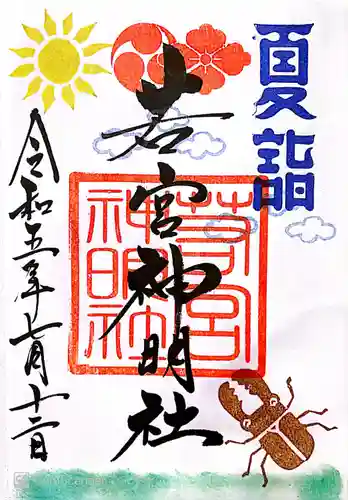 夏詣
若宮神明社
若宮神明社
令和五年七月十二日